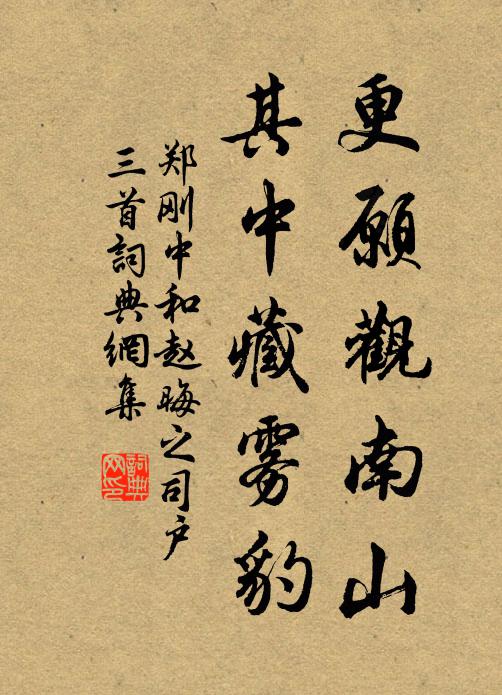 更願觀南山
其中藏雾豹
郑刚中和赵晦之司户
三首詞典網集
詞典网印